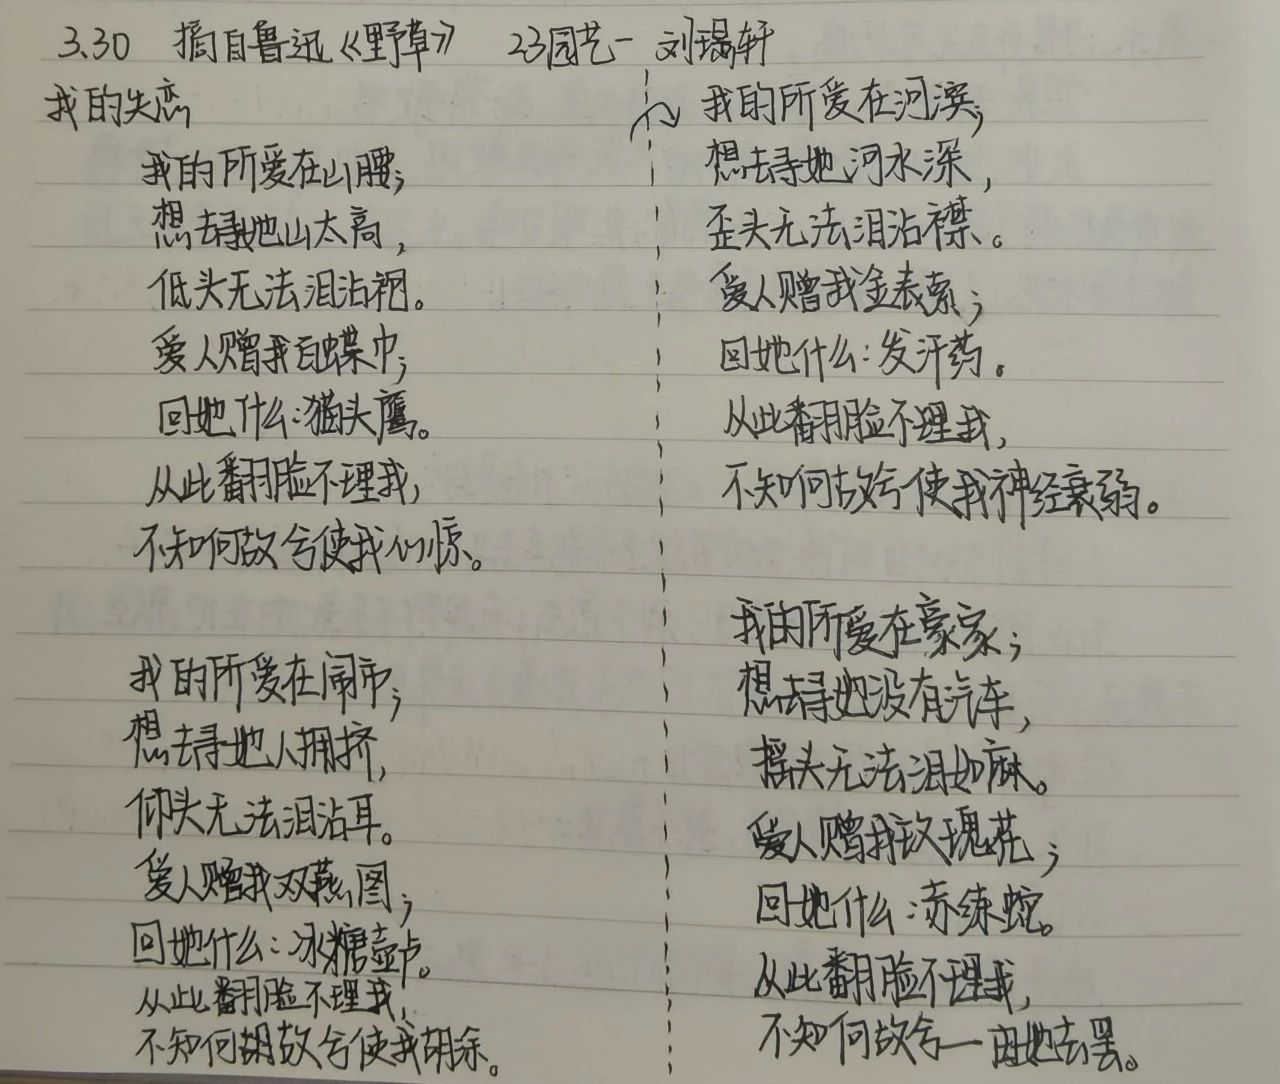 3.30 摘自鲁迅《野草》 23园艺一 刘瑞轩
我的失恋
我的所爱在山腰;
想去寻她山太高,
低头无法泪沾袍。
爱人赠我百蝶巾;
回她什么:猫头鹰。
从此翻脸不理我,
不知何故兮使我心惊。
我的所爱在闹市;
想去寻她人拥挤,
仰头无法泪沾耳。
爱人赠我双燕图;
回她什么:冰糖壶卢。
从此翻脸不理我,
不知何故兮使我胡涂。
我的所爱在河滨;
想去寻她河水深,
歪头无法泪沾襟。
爱人赠我金表索;
回她什么:发汗药。
从此翻脸不理我,
不知何故兮使我神经衰弱。
我的所爱在豪家;
想去寻她没有汽车,
摇头无法泪如麻。
爱人赠我玫瑰花;
回她什么:赤练蛇。
从此翻脸不理我,
不知何故兮一由她去罢。